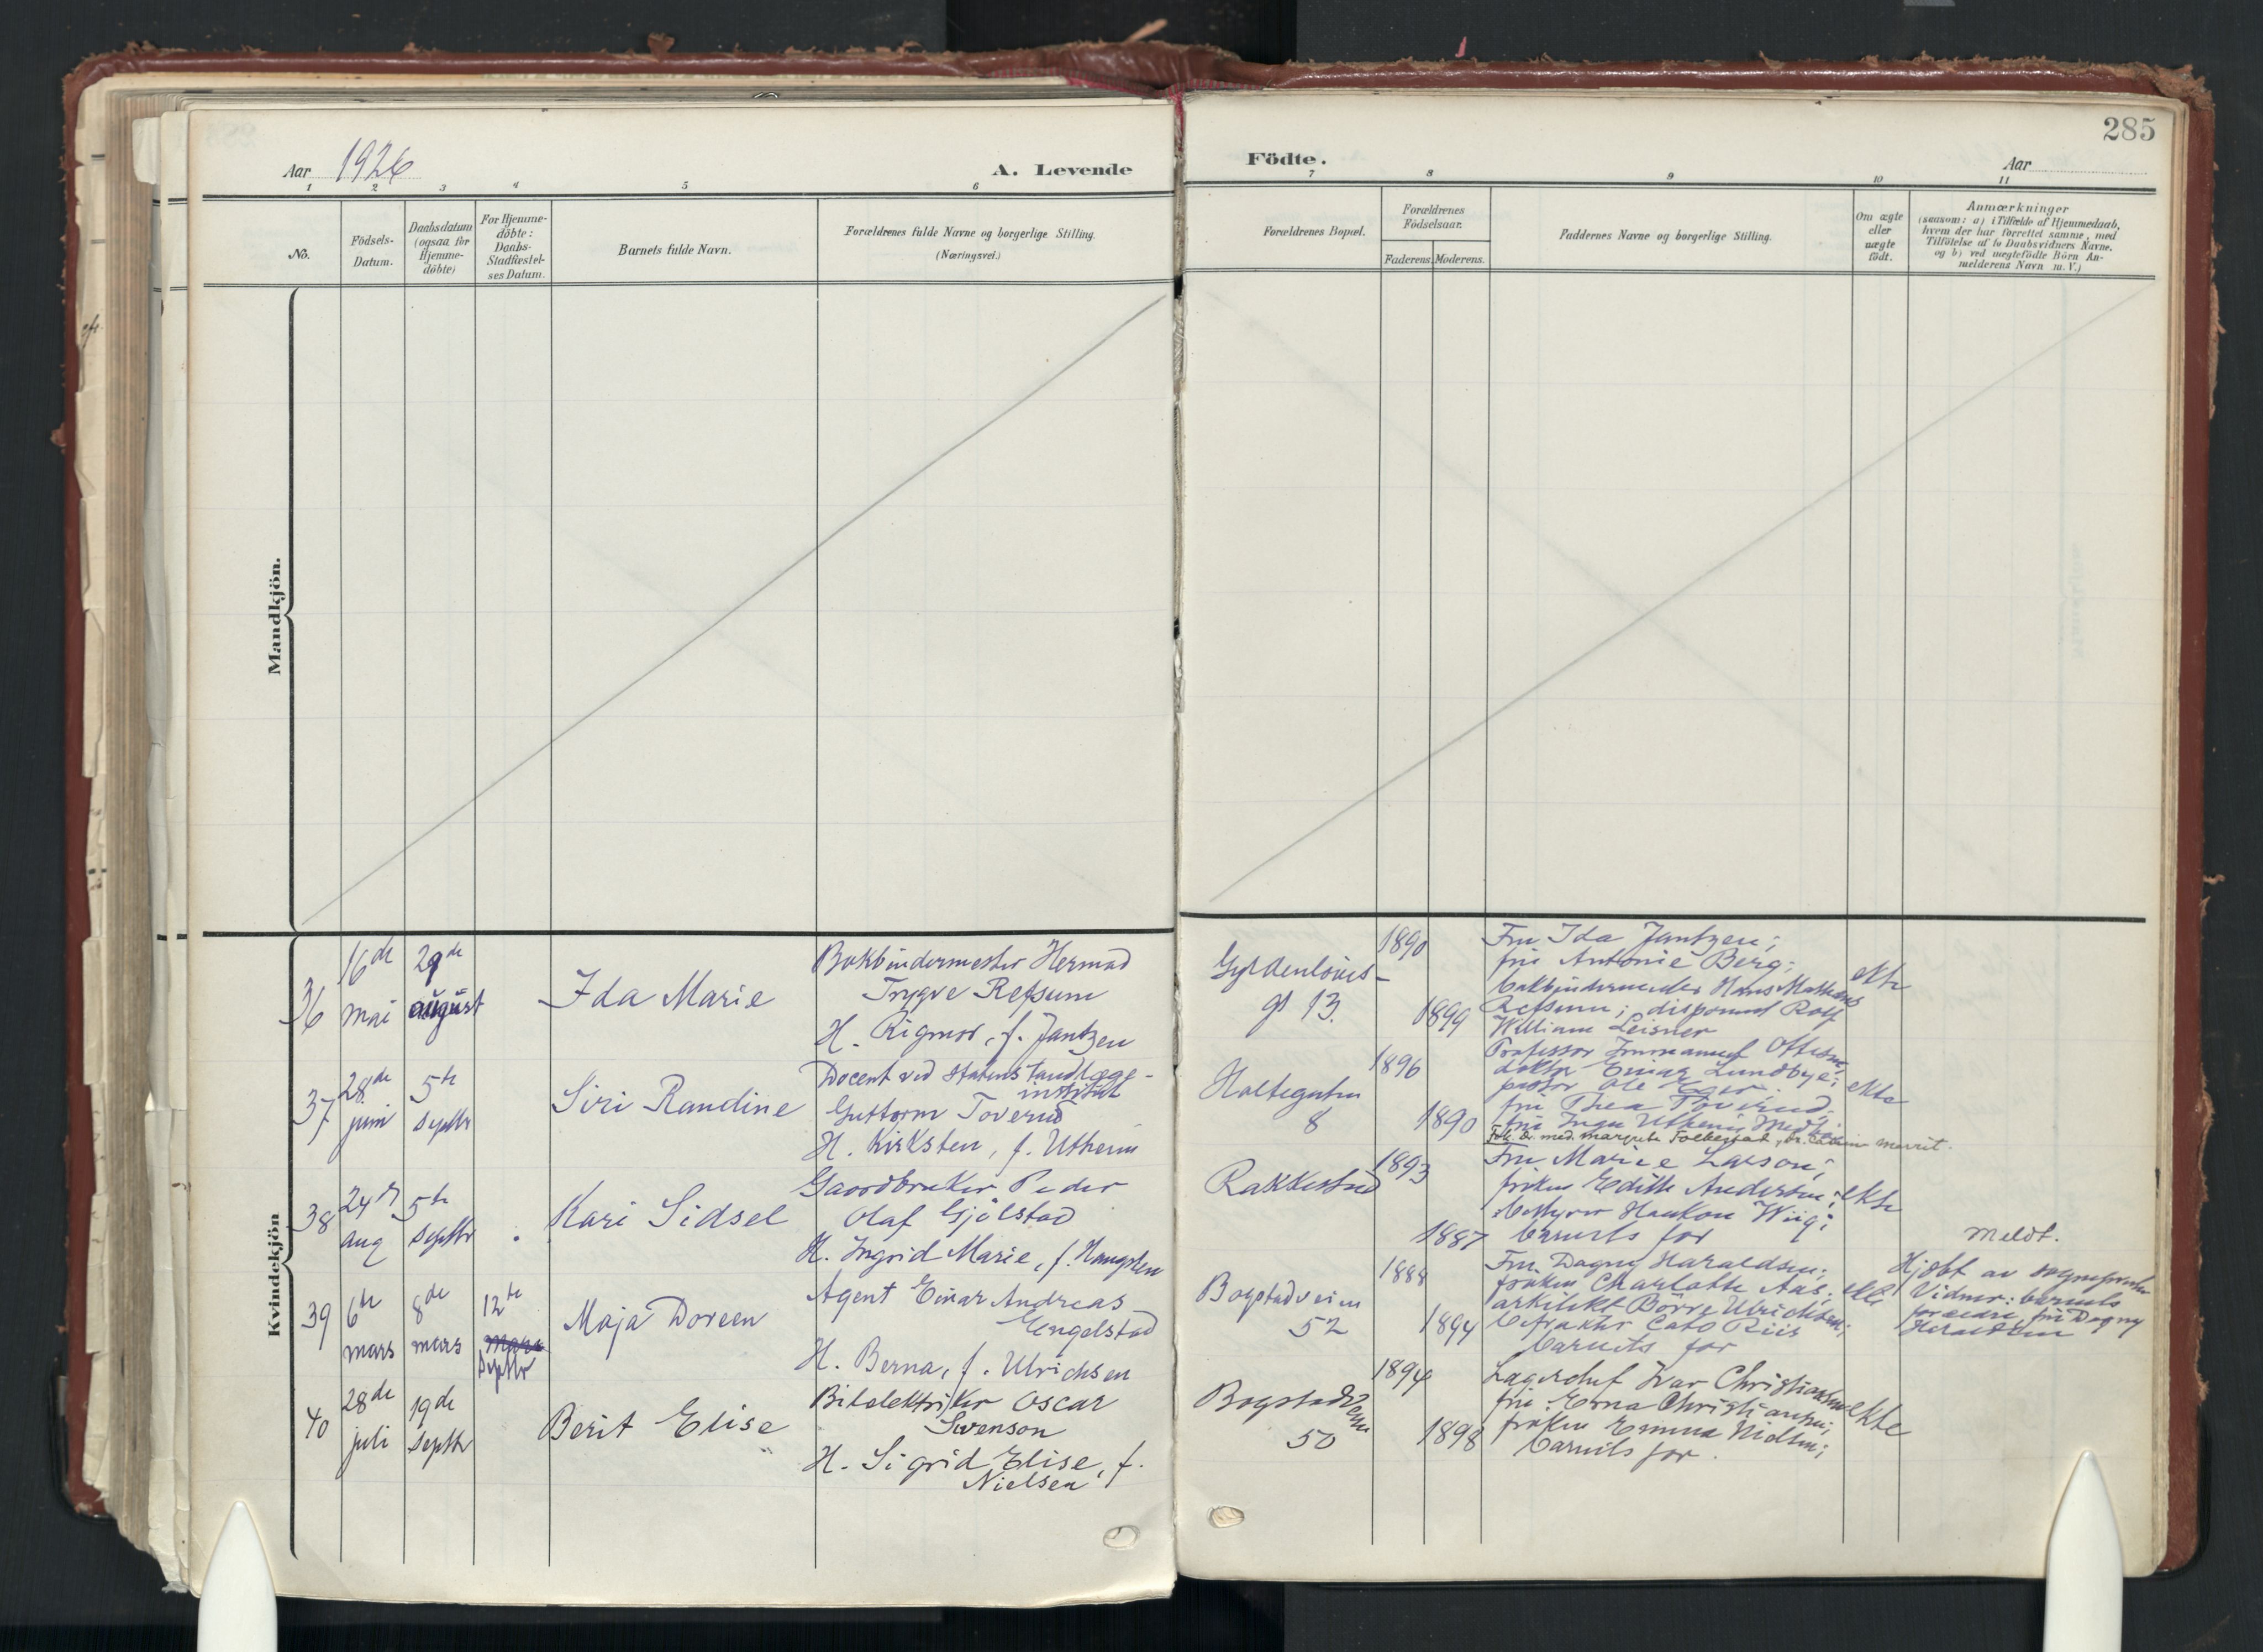 285
Aar 1926
A. Levende
Födte.
Aar
1 2 3 4 5 6
7 8 9 10 11
No.
Födsels-
Datum.
Daabsdatum
(ogsaa for
Hjemme-
döbte)
For Hjemme-
döbte:
Daabs-
Stadfæstel-
ses Datum.
Barnets fulde Navn.
Forældrenes fulde Navne og borgerlige Stilling.
(Næringsvei.)
Forældrenes Bopæl.
Forældrenes
Födselsaar.
Faderens. Moderens.
Faddernes Navne og borgerlige Stilling.
Om ægte
eller
uægte
födt.
Anmærkninger
(saasom: a) i Tilfælde af Hjemmedaab,
hvem der har forrettet samme, med
Tilföielse af to Daabsvidners Navne,
og b) ved uægtefödte Börn An-
melderens Navn m. V.)
Mandkjön.
Kvindekjön
36
16de
mai
29de
august
Ida Marie
Bokbindermester Hermod
Trygve Refsum
H. Rigmor, f. Jantzen
Gyldenløves-
gt 13.
1890
1899
Fru Ida Jantzen;
fru Antonie Berg;
bokbindermester Hans Mathias
Refsum; disponent Rolf
William Leisner
ekte
37
28de
juni
5te
septbr
Siri Randine
Docent ved Statens tandlæge-
institut
Guttorm Toverud
H. Kirsten, f. Utheim
Holtegaten
8
1896
1890
Professor Immanuel Ottesen;
doktor Einar Lundbye;
pastor Ole
fru Thea Toverud
fru Inga Utheim
med. Margrete
ekte
38
24de
aug
5te
septbr
Kari Sidsel
Gaardbruker Peder
Olaf Gjølstad
H. Ingrid Marie, f. Haugsten
Rakkestad
1893
1887
Fru Marie Larson;
frøken Edith Andersen;
bestyrer Haakon Wiig;
barnets far
ekte
39
6te
mars
8de
mars
12te
mars
septbr
Maja Doreen
Agent Einar Andreas
Engelstad
H. Berna, f. Ulrichsen
Bogstadveien
52
1888
1894
Fru Dagny Haraldsen;
frøken Charlotte Aas;
arkitekt Børre Ulrichsen;
Cato Riis
barnets far
ekte
Meldt.
Hjdbt av sogneprest
Vidner: barnets
forældre, fru Dagny
Haraldsen
40
28de
juli
19de
septbr
Berit Elise
Bilelektriker Oscar
Swenson
H. Sigrid Elise, f.
Nielsen
Bogstadveien
50
1894
1898
Lagerchef Ivar Christiansen
fru Erna Christiansen;
frøken Emma Nielsen;
barnets far.
ekte